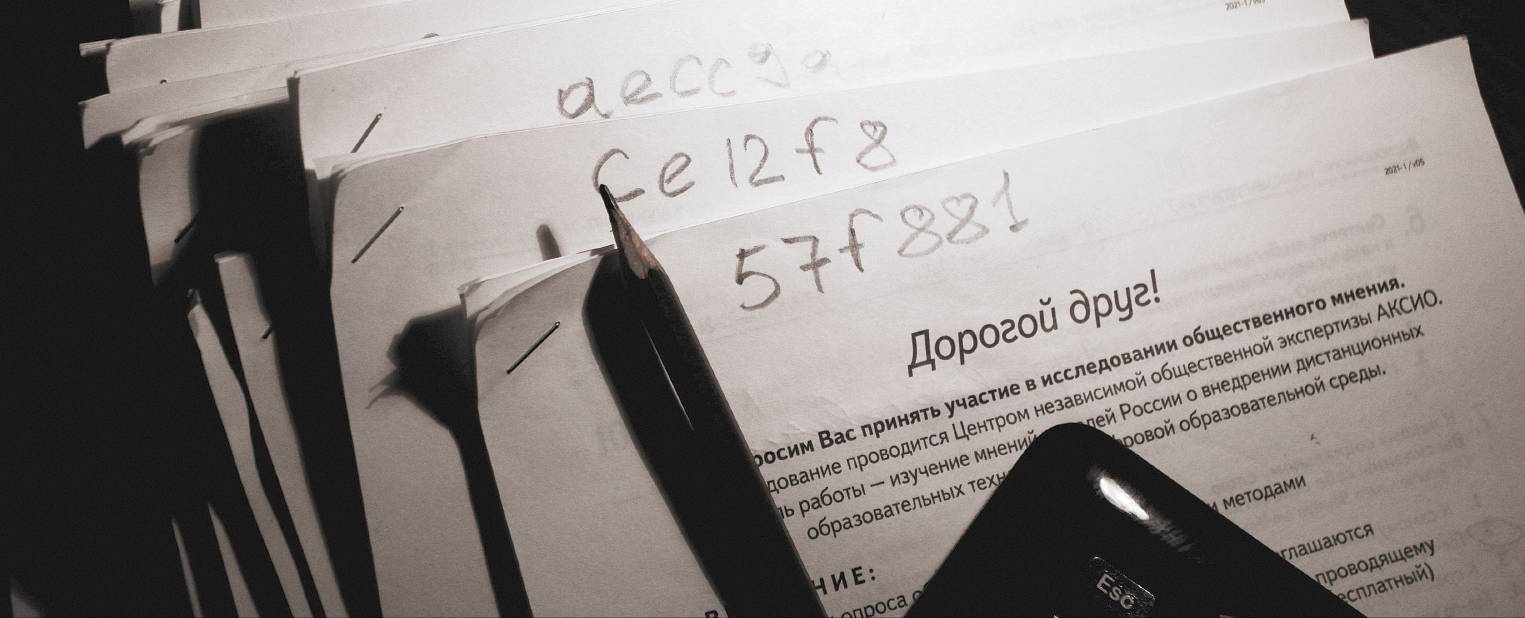 2021-1 / v05
aecc9a
ce12f8
57f881
2021-1 / v05
Дорогой друг!
росим Вас принять участие в исследовании общественного мнения.
дование проводится Центром независимой общественной экспертизы АКСИО.
ь работы — изучение мнений лей России о внедрении дистанционных
образовательных техн ровой образовательной среды.
и методами
НИЕ:
глашаются
опроса проводящему
есплатный)
Esc